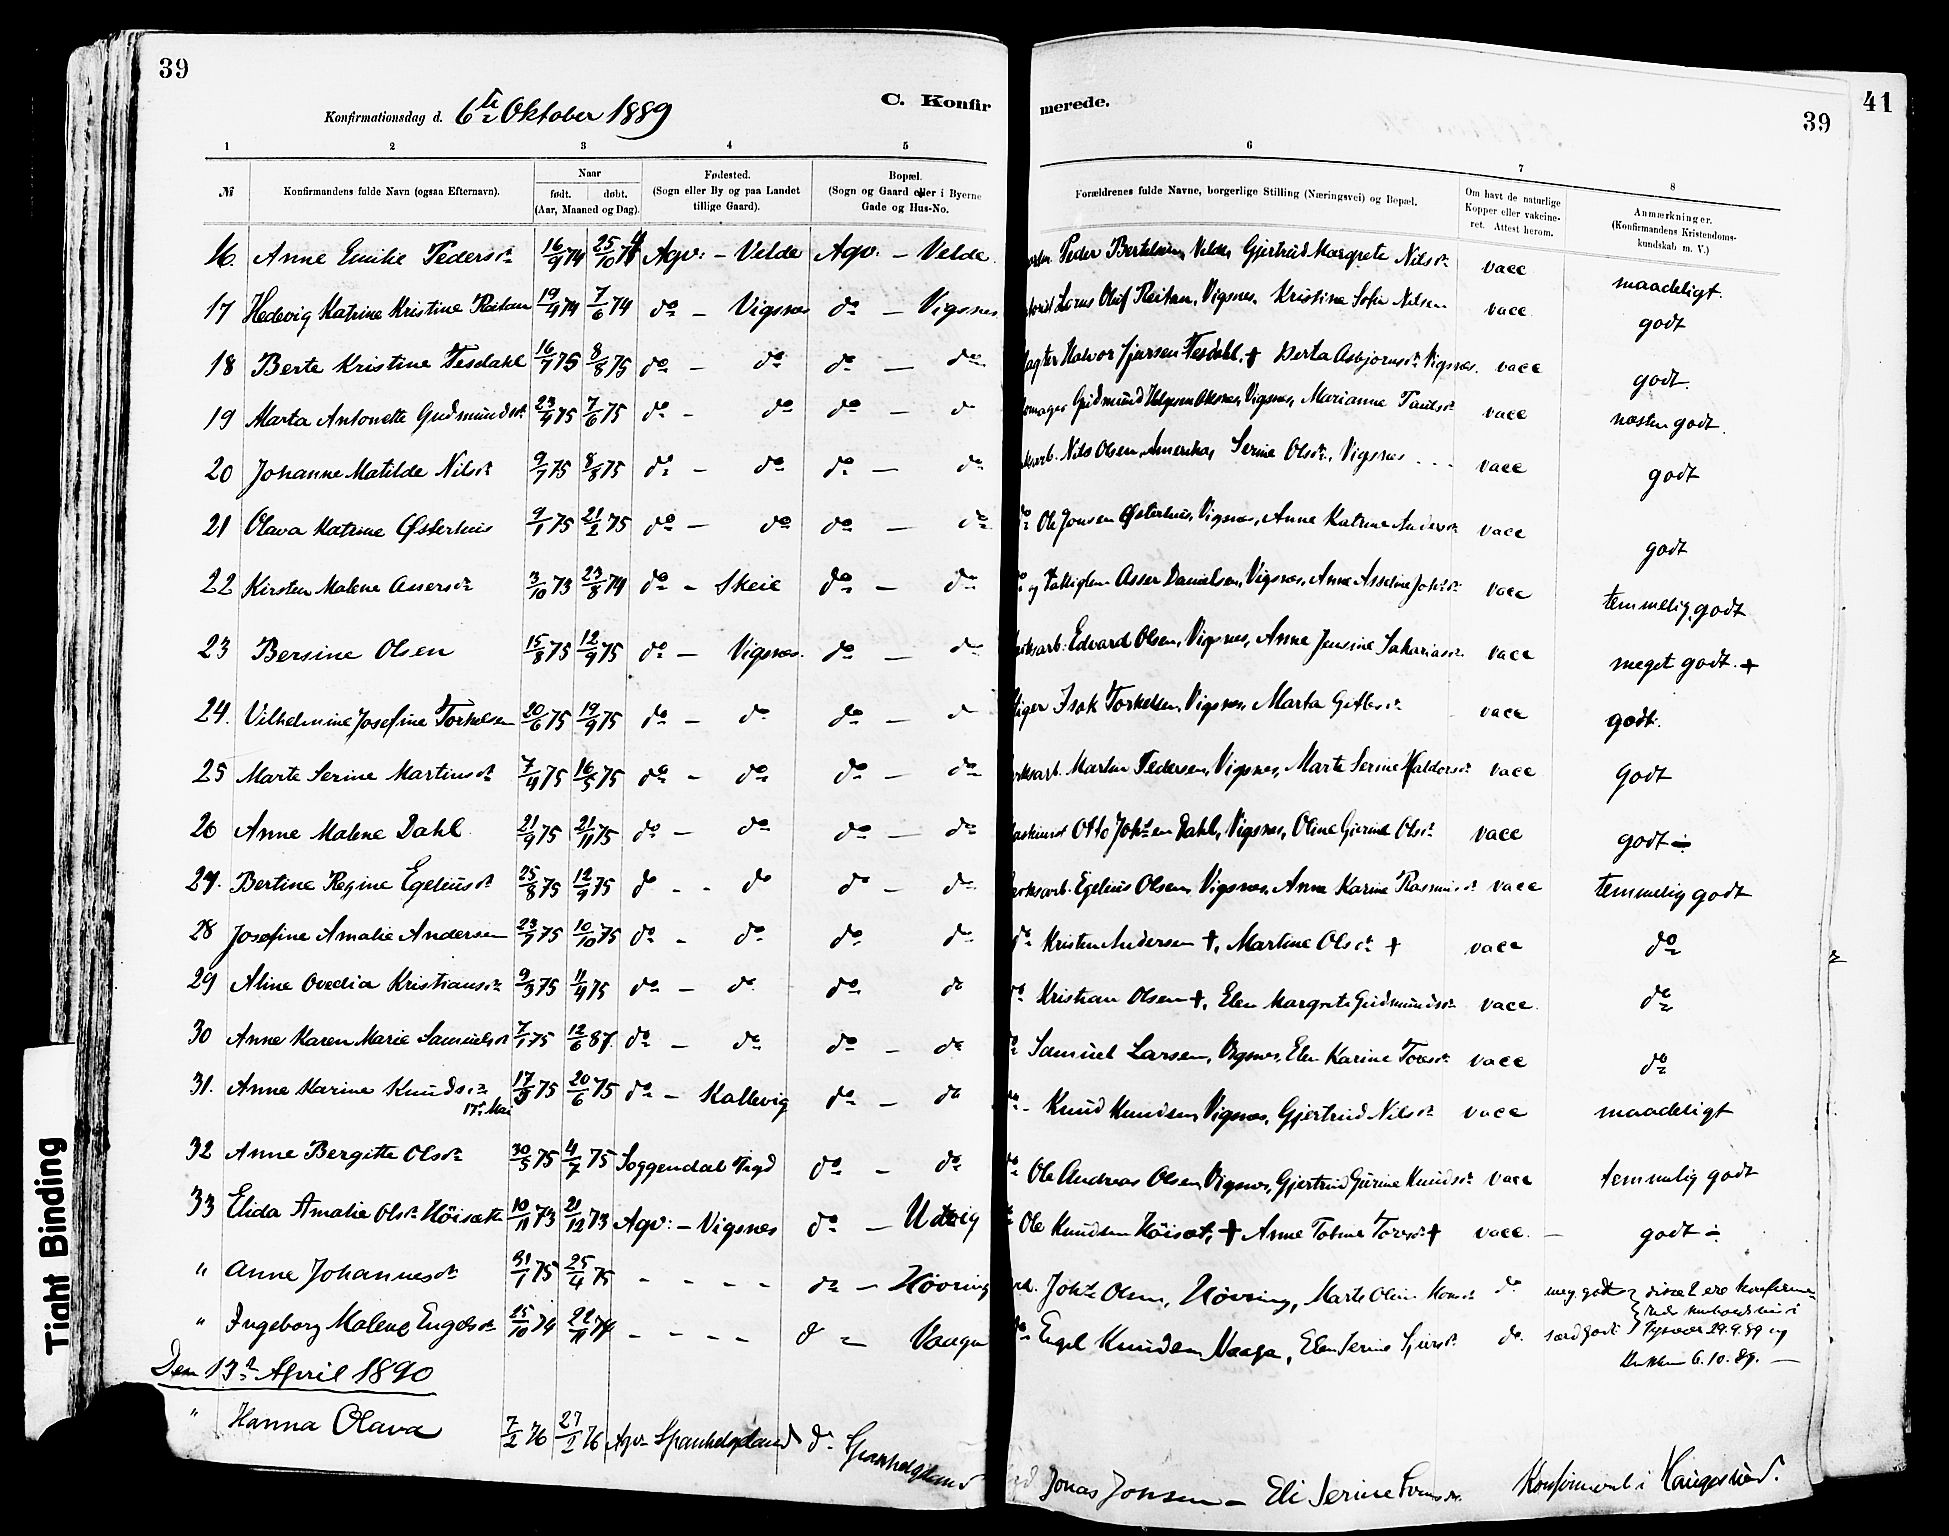 39
41
39
Konfirmationsdag d. 6te Oktober 1889
C. Konfir
merede.
1 2 3 4 5 6 7 8
№ Konfirmandens fulde Navn (ogsaa Efternavn). Naar født. døbt. (Aar, Maaned og Dag). Fødested. (Sogn eller By og paa Landet tillige Gaard). Bopæl. (Sogn og Gaard eller i Byerne Gade og Hus-No. Forældrenes fulde Navne, borgerlige Stilling (Næringsvei) og Bopæl. Om havt de naturlige Kopper eller vakcineret. Attest herom. Anmærkninger. (Konfirmandens Kristendomskundskab m. V.)
16. Anne Emilie Pedersdr 16/9 74 25/10 74 Agv: - Velde Agv: - Velde Peder Bertelsen, Velde, Gjertrud Margrete Nilsdr vacc maadeligt.
17 Hedevig Katrine Kristine Reitan 19/4 74 7/6 74 do - Vigsnes do - Vigsnes Oluf Reitan, Vigsnes, Kristine Sofie Nilsen vacc godt
18 Berte Kristine Tesdahl 16/7 75 8/8 75 do - do do - do Halvor Tesdahl, + Berta Asbjørnsdr Vigsnes. vacc godt.
19 Marta Antonette Gudmundsdr 23/4 75 7/6 75 do - do do - do Gudmund Vigsnes, Marianne vacc næsten godt.
20 Johanne Matilde Nilsdr 9/7 75 8/8 75 do - do do - do Nils Olsen, Amerika, Serine Olsdr, Vigsnes vacc godt
21 Olava Katrine Østerhus 9/1 75 21/2 75 do - do do - do do Ole Jonsen Østerhus, Vigsnes, Anne Katrine Andersdr vacc godt
22 Kirsten Malene Assersdr 3/10 73 23/8 74 do - Skeie do - do Asser Danielsen, Vigsnes, Anne Asseline vacc temmelig godt
23 Bersine Olsen 15/8 75 12/9 75 do - Vigsnes. do - do Edvard Olsen, Vigsnes, Anne Jensine Sakariasdr vacc meget godt. +
24. Vilhelmine Josefine Torkelsen 20/6 75 19/9 75 do - do do - do Isak Torkelsen, Vigsnes, Marta vacc godt.
25 Marte Serine Martinsdr 7/4 75 16/5 75 do - do do - do Martin Pedersen, Vigsnes, Marte Serine Haldorsdr vacc godt
26 Anne Malene Dahl 21/9 75 21/11 75 do - do do - do Otto Dahl, Vigsnes, Oline Gjerine Olsdr vacc godt ÷
27. Bertine Regine Egeliusdr 25/8 75 12/9 75 do - - do do - do Egelius Olsen, Vigsnes, Anne Karine Rasmusdr vacc temmelig godt
28 Josefine Amalie Andersen 23/7 75 10/10 75 do - do do do do Kristen Andersen +, Martine Olsdr + vacc do
29 Aline Ovedia Kristiansdr 9/3 75 11/4 75 do - do do do do Kristian Olsen +, Elen Margrete Gudmundsdr vacc do
30 Anne Karen Marie Samuelsdr 7/1 75 12/6 87. do - do do - do do Samuel Larsen, Vigsnes, Elen Karine vacc do
31. Anne Karine Knudsdr 17/5 75 20/6 75 do - Kallevig do - do do - Knud Knudsen, Vigsnes, Gjertrud Nilsdr vacc maadeligt
17de Mai
32 Anne Bergitte Olsdr 30/5 75 4/7 75 Soggendal do - do do Ole Andreas Olsen, Vigsnes, Gjertrud Gurine Knudsdr vacc temmelig godt
33 Elida Amalie Olsdr Höisæt 10/11 73 21/12 73 Agv: - Vigsnes do - Utvig Ole Knudsen Höisæt, + Anne Tobine + vacc. - godt ÷
" Anne Johannesdr 31/1 75 25/4 75 - - - - do - Hövring Olsen, Hövring, Marte Oline do meg. godt disse 2 ere konfirme-
" Ingeborg Malene Engelsdr 15/10 74 22/11 74 - - - - do - Vaaga do Engel Knudsen Vaaga, Elen Serine do særd godt Tysvær 29.9.89 og
6.10.89. -
Den 13de April 1890
" Hanna Olava 7/2 76 27/2 76 Agv Spanhelgsland do Spanhelgsland Jonas Jonsen - Eli Serine Konfirmeret i Haugesund.
Tight Binding